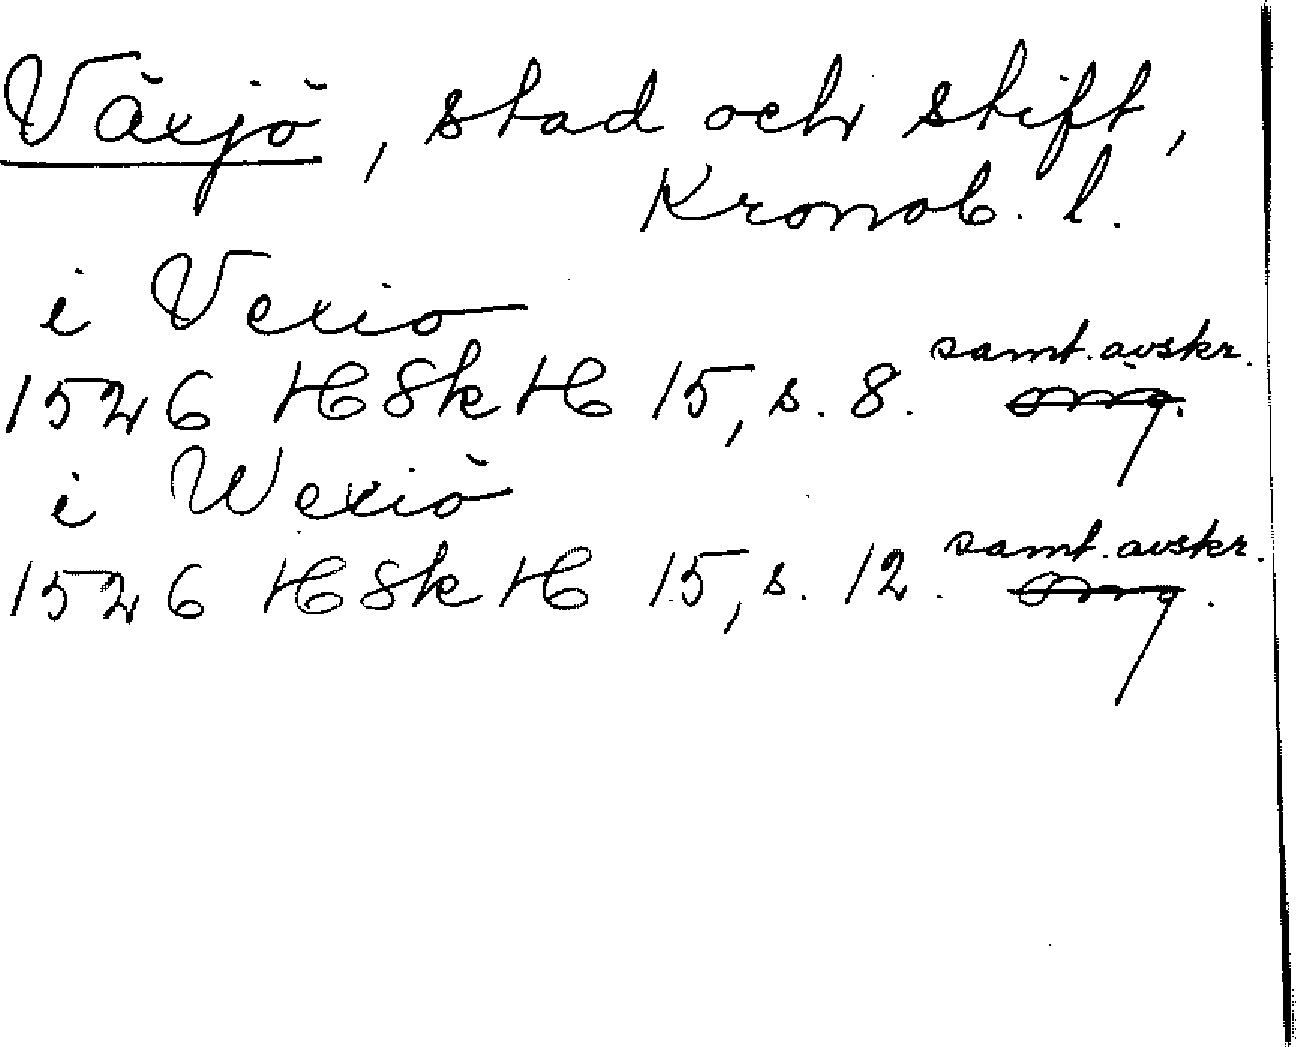 Växjö, stad och stift,
Kronob. l.
i Vexio
1526 HSkH 15, s. 8. samt. avskr.
i Wexiö
1526 HSkH 15, s. 12. samt. avskr.